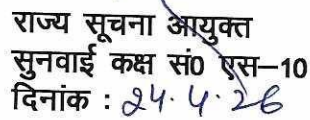 राज्य सूचना आयुक्त
सुनवाई कक्ष सं0 एस–10
दिनांक : 24.4.26